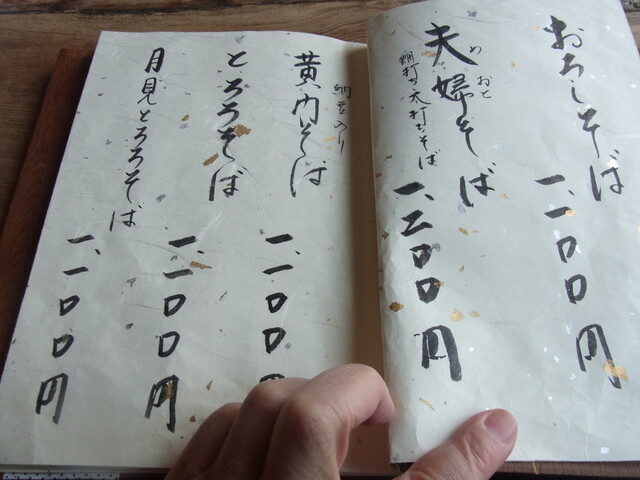 おろしそば 一、一〇〇円
めおと
夫婦そば
細打ち太打ちそば 一、二〇〇円
納豆入り
黄門そば 一、一〇〇円
とろろそば 一、一〇〇円
月見とろろそば 一、一〇〇円